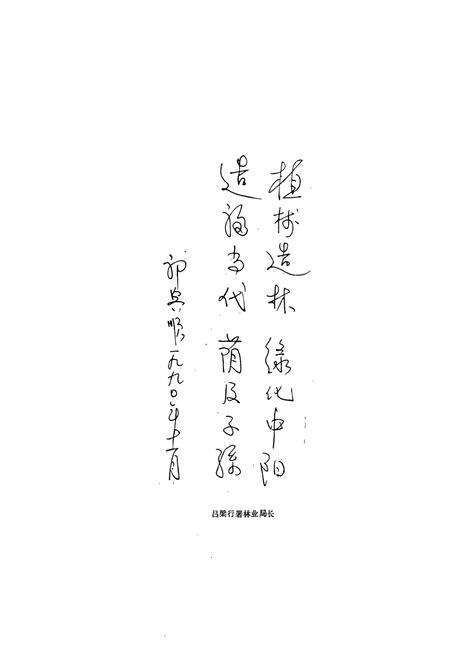 植树造林 绿化中阳
造福当代 荫及子孙
郭兴顺 一九九〇年十一月
吕梁行署林业局长